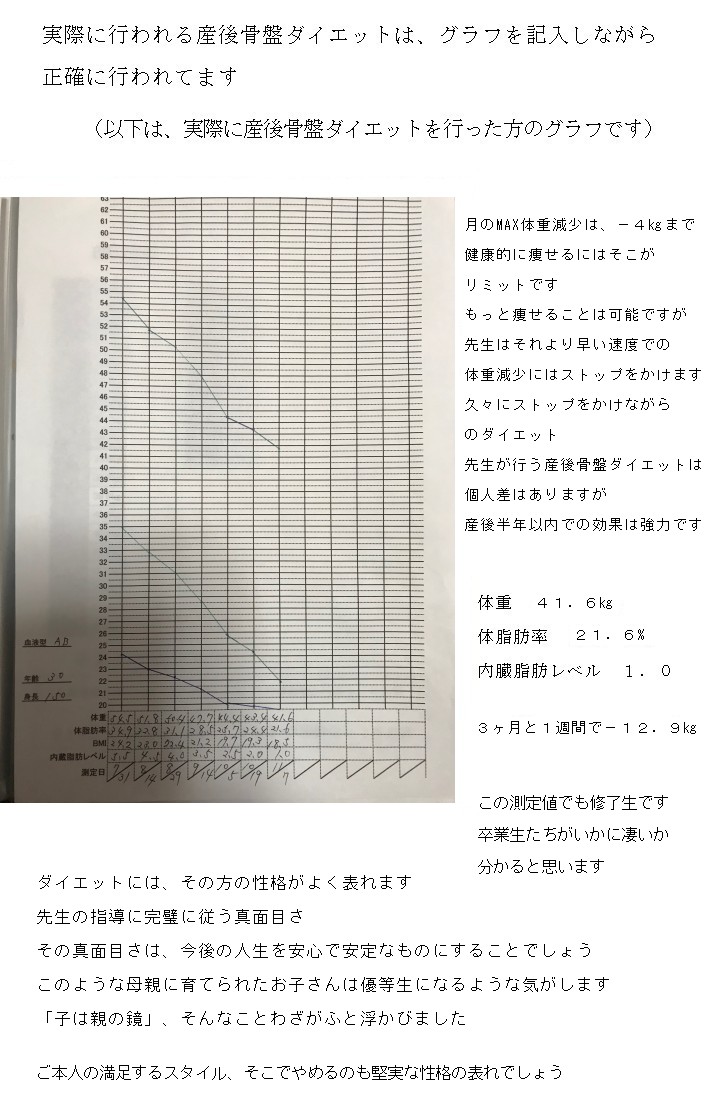 実際に行われる産後骨盤ダイエットは、グラフを記入しながら
正確に行われてます
（以下は、実際に産後骨盤ダイエットを行った方のグラフです）
月のMAX体重減少は、－４㎏まで
健康的に痩せるにはそこが
リミットです
もっと痩せることは可能ですが
先生はそれより早い速度での
体重減少にはストップをかけます
久々にストップをかけながら
のダイエット
先生が行う産後骨盤ダイエットは
個人差はありますが
産後半年以内での効果は強力です
体重　４１．６㎏
体脂肪率　２１．６％
内臓脂肪レベル　１．０
３ヶ月と１週間で－１２．９㎏
この測定値でも修了生です
卒業生たちがいかに凄いか
分かると思います
63
62
61
60
59
58
57
56
55
54
53
52
51
50
49
48
47
46
45
44
43
42
41
40
39
38
37
36
35
34
33
32
31
30
29
28
27
26
25
24
23
22
21
20
血液型 AB
年齢 30
身長 150
体重 54.5 51.8 50.4 47.7 44.4 43.4 41.6
体脂肪率 34.9 32.8 31.1 28.5 25.7 24.4 21.6
BMI 24.2 23.0 22.4 21.2 19.7 19.3 18.5
内臓脂肪レベル 5.5 4.5 4.0 3.5 2.5 2.0 1.0
測定日 7/31 8/14 8/29 9/14 10/5 10/19 11/7
ダイエットには、その方の性格がよく表れます
先生の指導に完璧に従う真面目さ
その真面目さは、今後の人生を安心で安定なものにすることでしょう
このような母親に育てられたお子さんは優等生になるような気がします
「子は親の鏡」、そんなことわざがふと浮かびました
ご本人の満足するスタイル、そこでやめるのも堅実な性格の表れでしょう